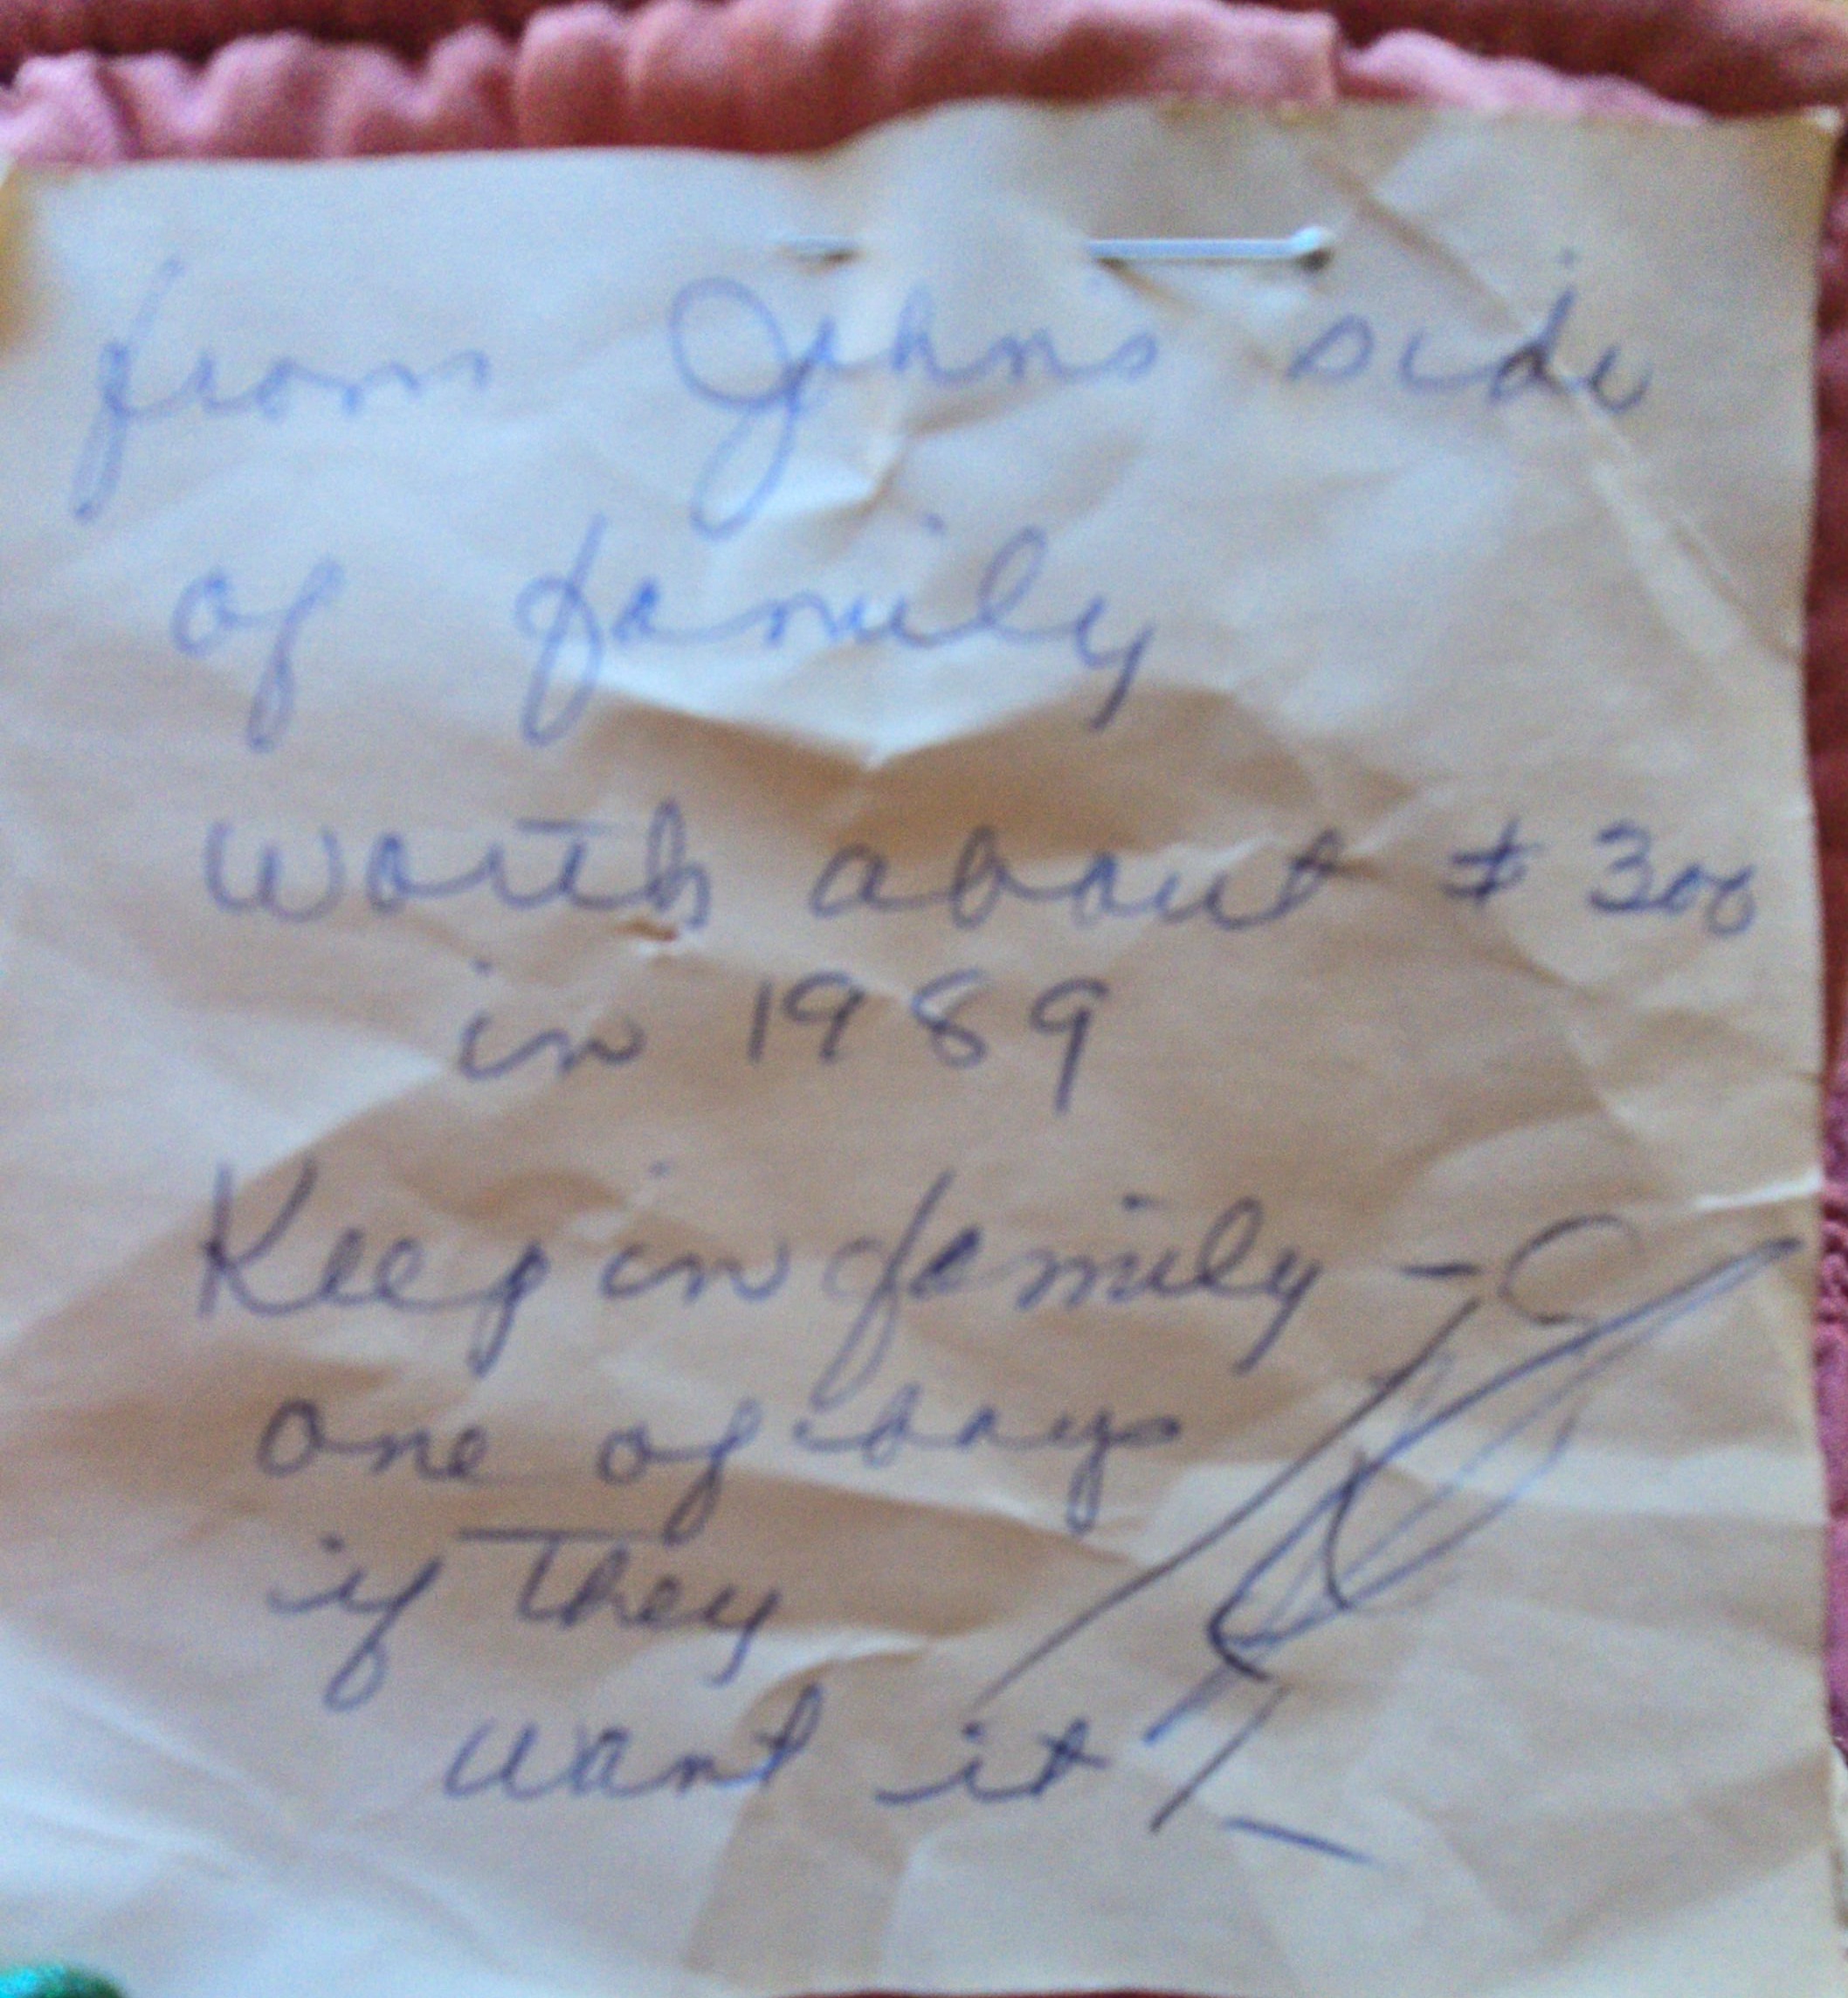 from John's side
of family
worth about $300
in 1989
Keep in family -
one of boys
if they
want it